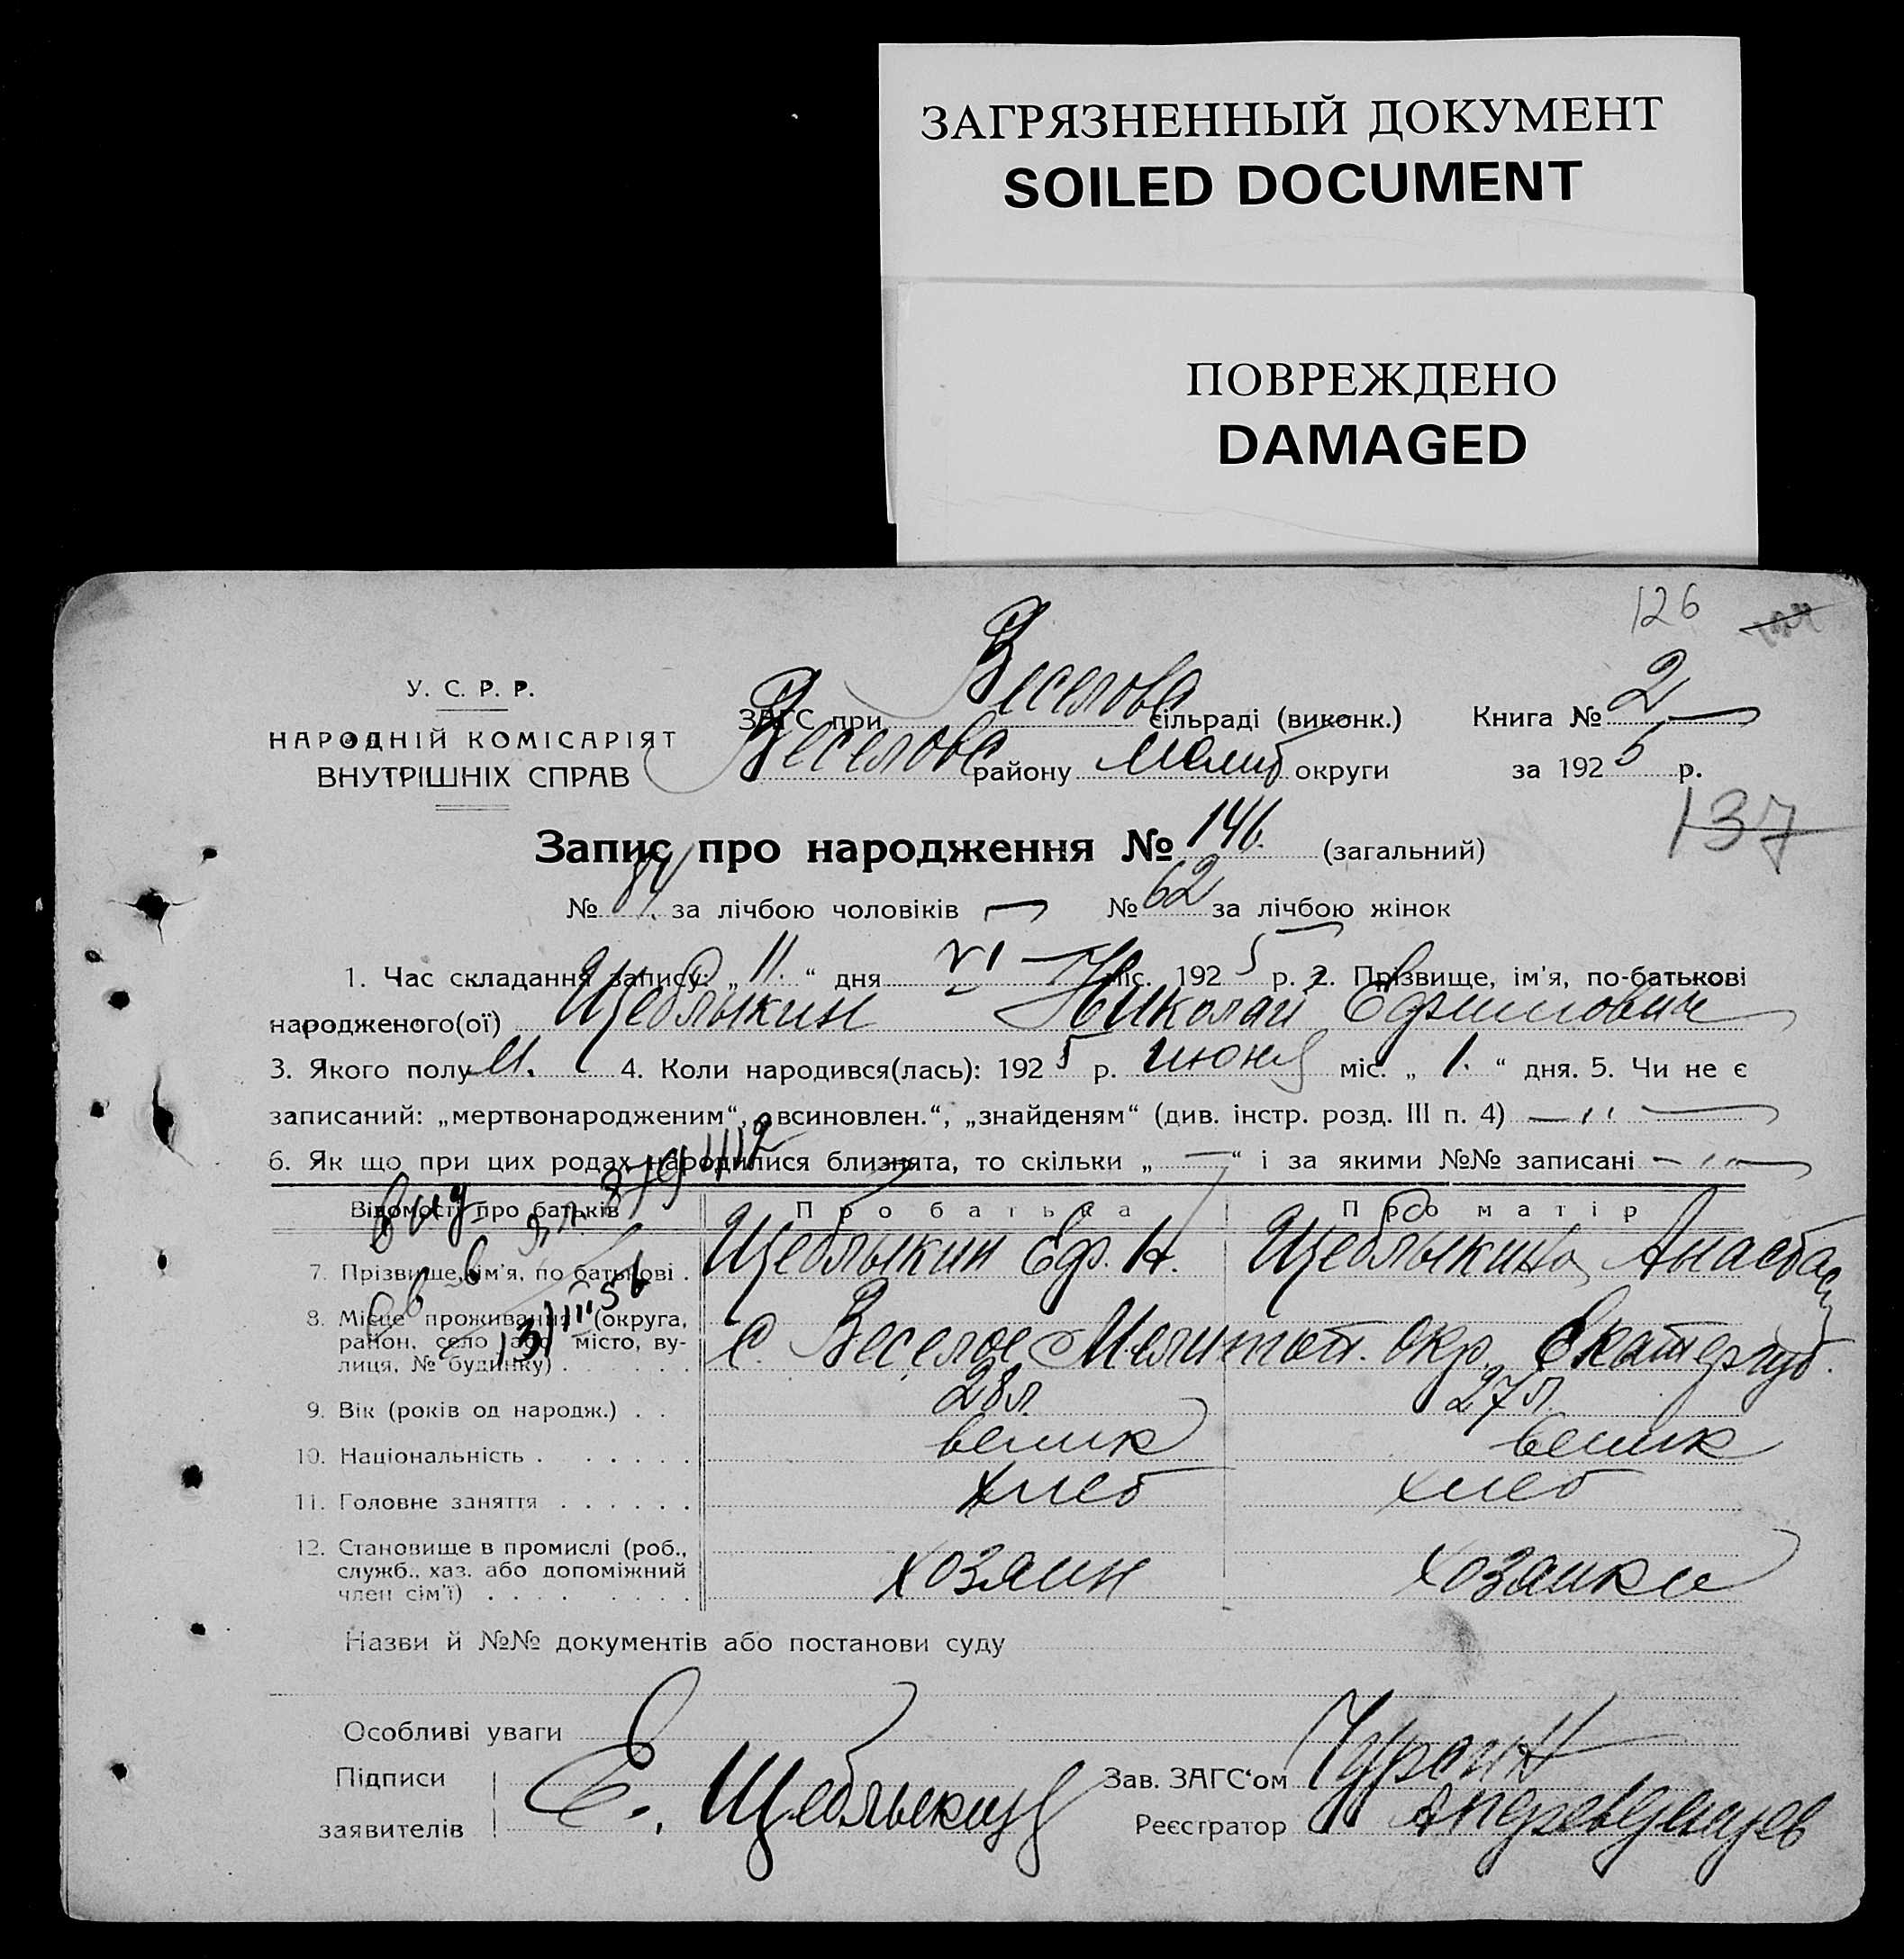 ЗАГРЯЗНЕННЫЙ ДОКУМЕНТ
SOILED DOCUMENT
ПОВРЕЖДЕНО
DAMAGED
126
У. С. Р. Р.
НАРОДНІЙ КОМІСАРІЯТ
ВНУТРІШНІХ СПРАВ
ЗАГС при Веселовс сільраді (виконк.) Книга № 2
Веселовс району Мелит округи за 1925 р.
137
Запис про народження № 146. (загальний)
№ 84 за лічбою чоловіків № 62 за лічбою жінок
1. Час складання запису: „11.“ дня VI міс. 1925 р. 2. Прізвище, ім'я, по-батькові
народженого(ої) Щеблыкин Николай Ефимович
3. Якого полу М. 4. Коли народився(лась): 1925 р. июня міс. „1.“ дня. 5. Чи не є
записаний: „мертвонародженим“, „всиновлен.“, „знайденям“ (див. інстр. розд. III п. 4) — „ —
6. Як що при цих родах народилися близнята, то скільки „—“ і за якими №№ записані — „ —
Відомості про батьків Про батька Про матір
7. Прізвище, ім'я, по батькові . Щеблыкин Еф. Н. Щеблыкина Анастас
8. Місце проживання (округа,
район, село або місто, ву-
лиця, № будинку) . . . . . С. Веселое Мелитоп. окр. Екатер губ.
9. Вік (років од народж.) . . 28 л. 27 л.
10. Національність . . . . . . велик велик
11. Головне заняття . . . . . . хлеб хлеб
12. Становище в промислі (роб.,
служб., хаз. або допоміжний
член сім'ї) . . . . . . . . хозяин хозяйка
Назви й №№ документів або постанови суду
Особливі уваги
Підписи
заявителів Е. Щеблыкин
Зав. ЗАГС'ом
Реєстратор